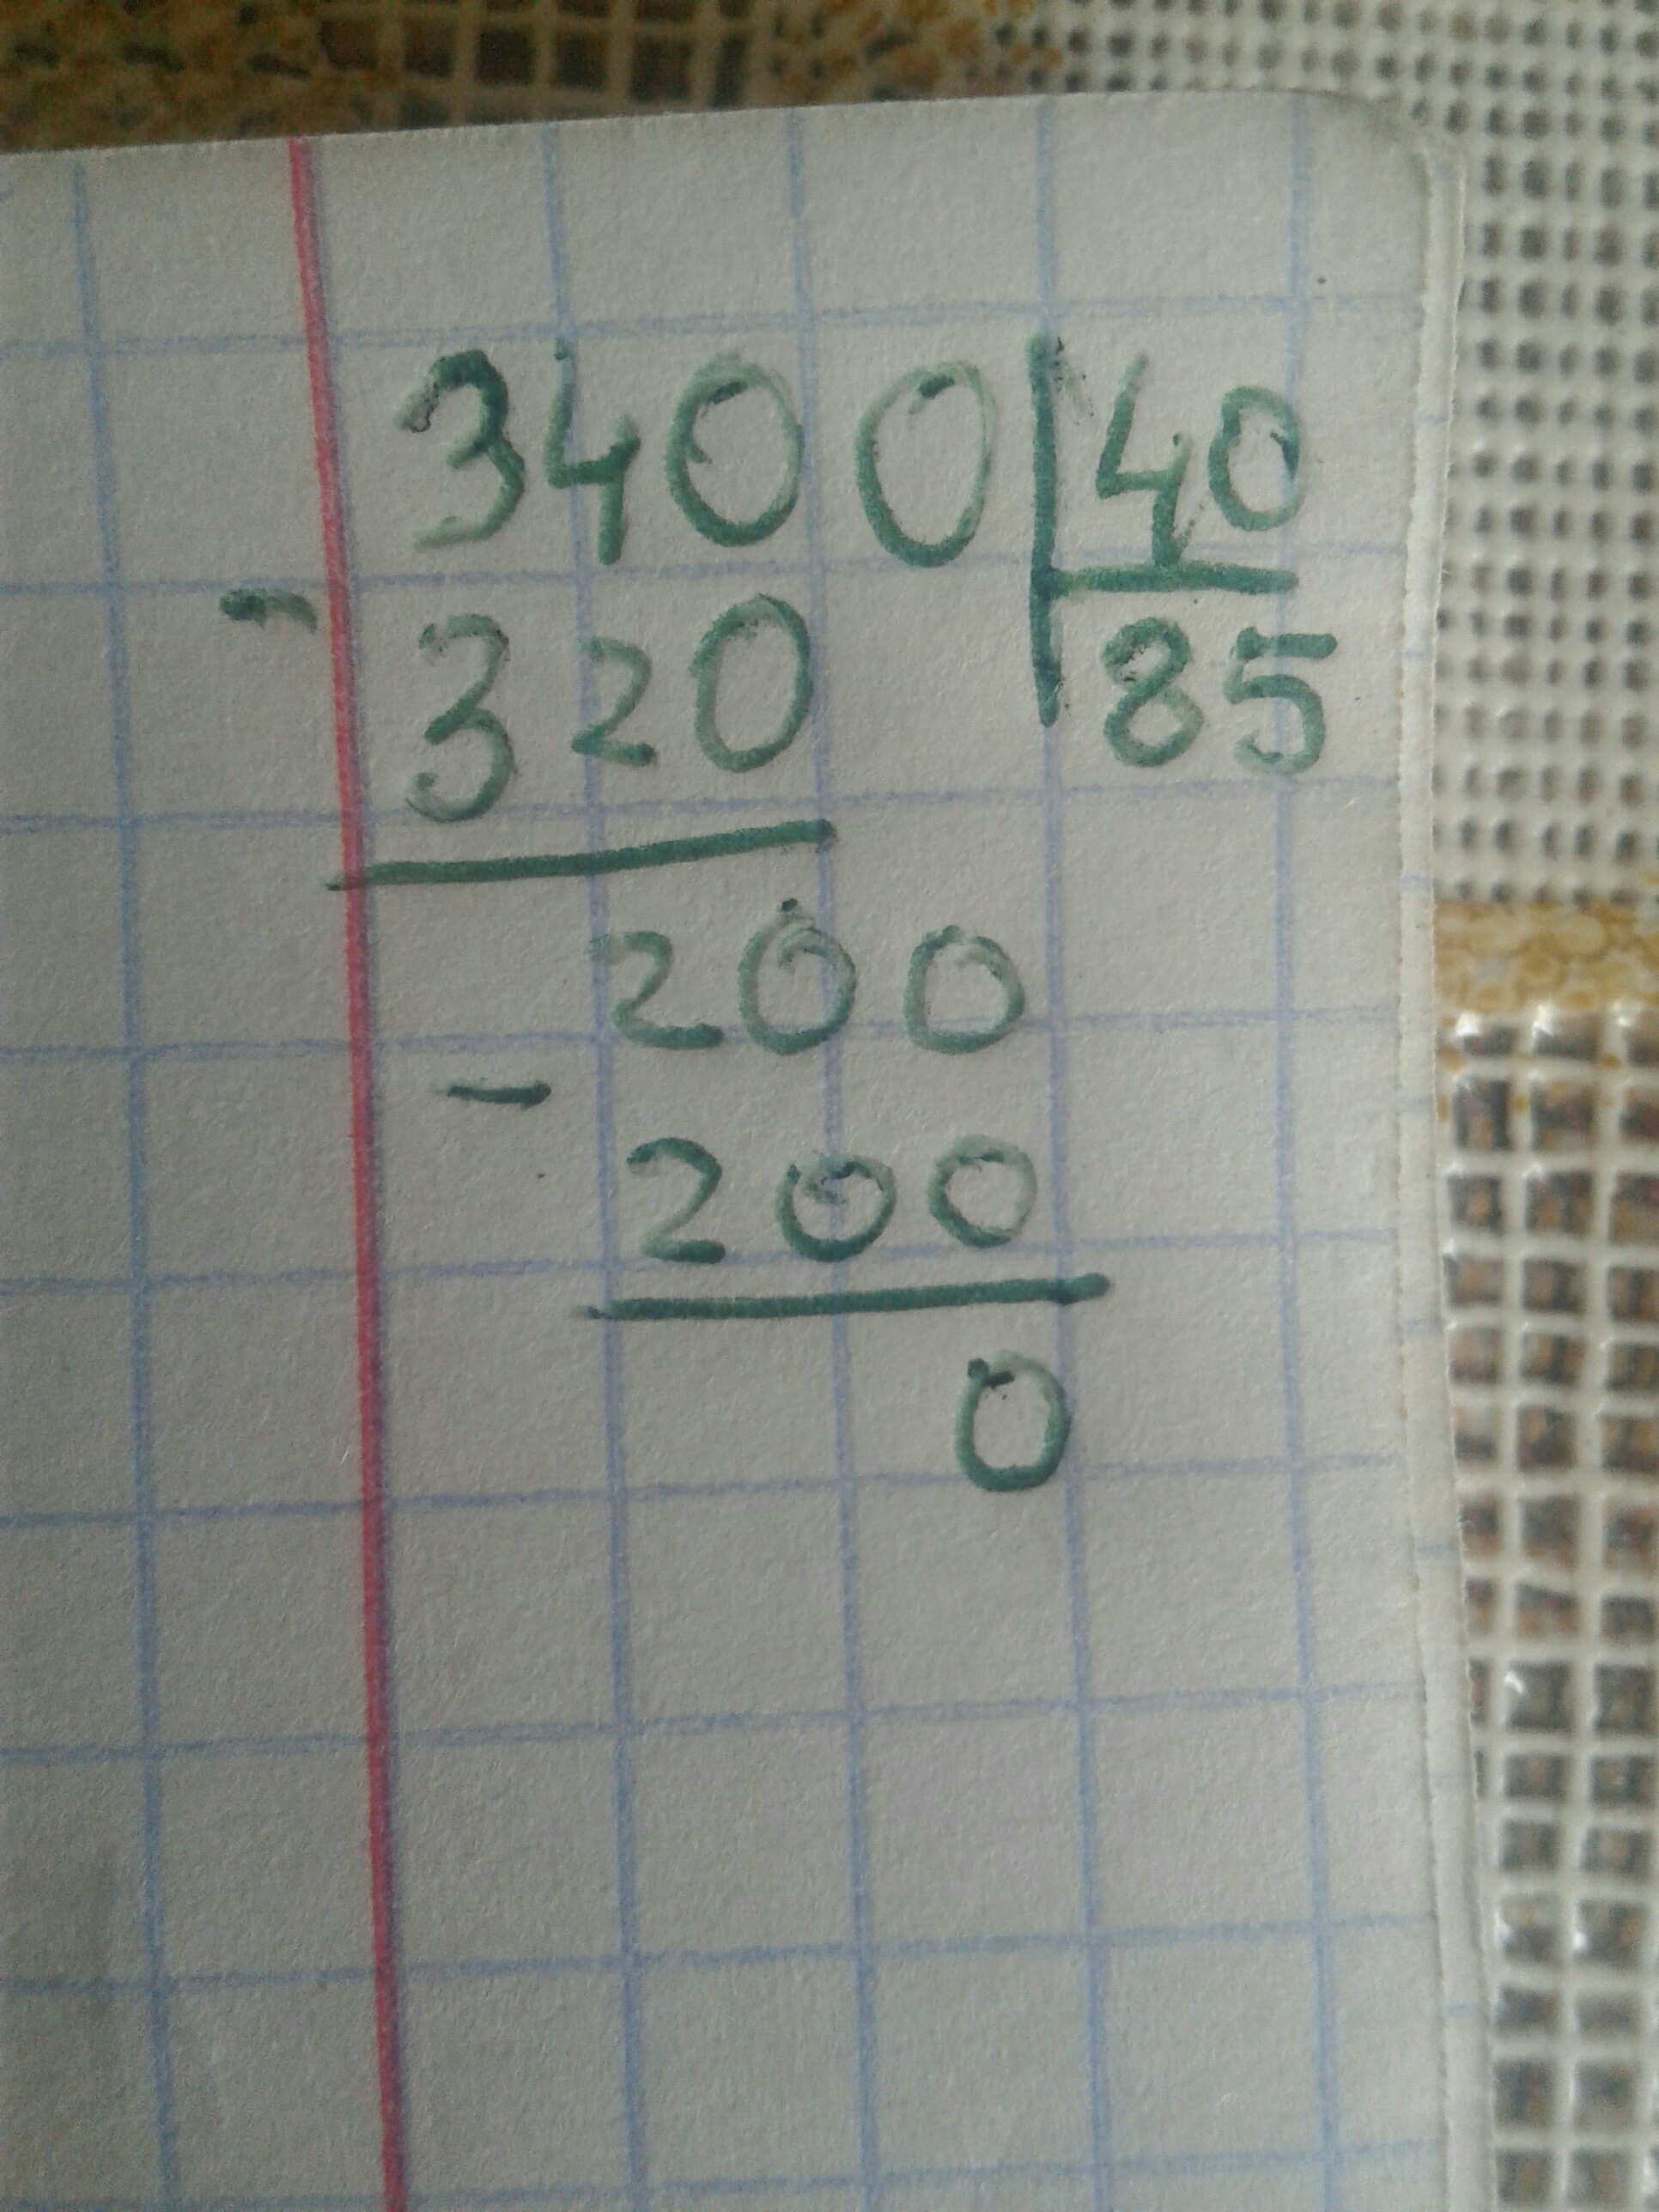 3400 40
- 320 85
200
- 200
0